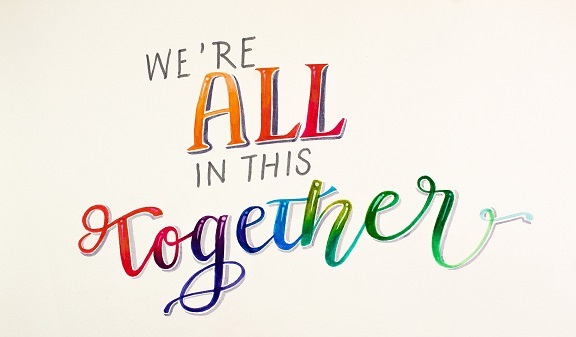 WE'RE
ALL
IN THIS
Together